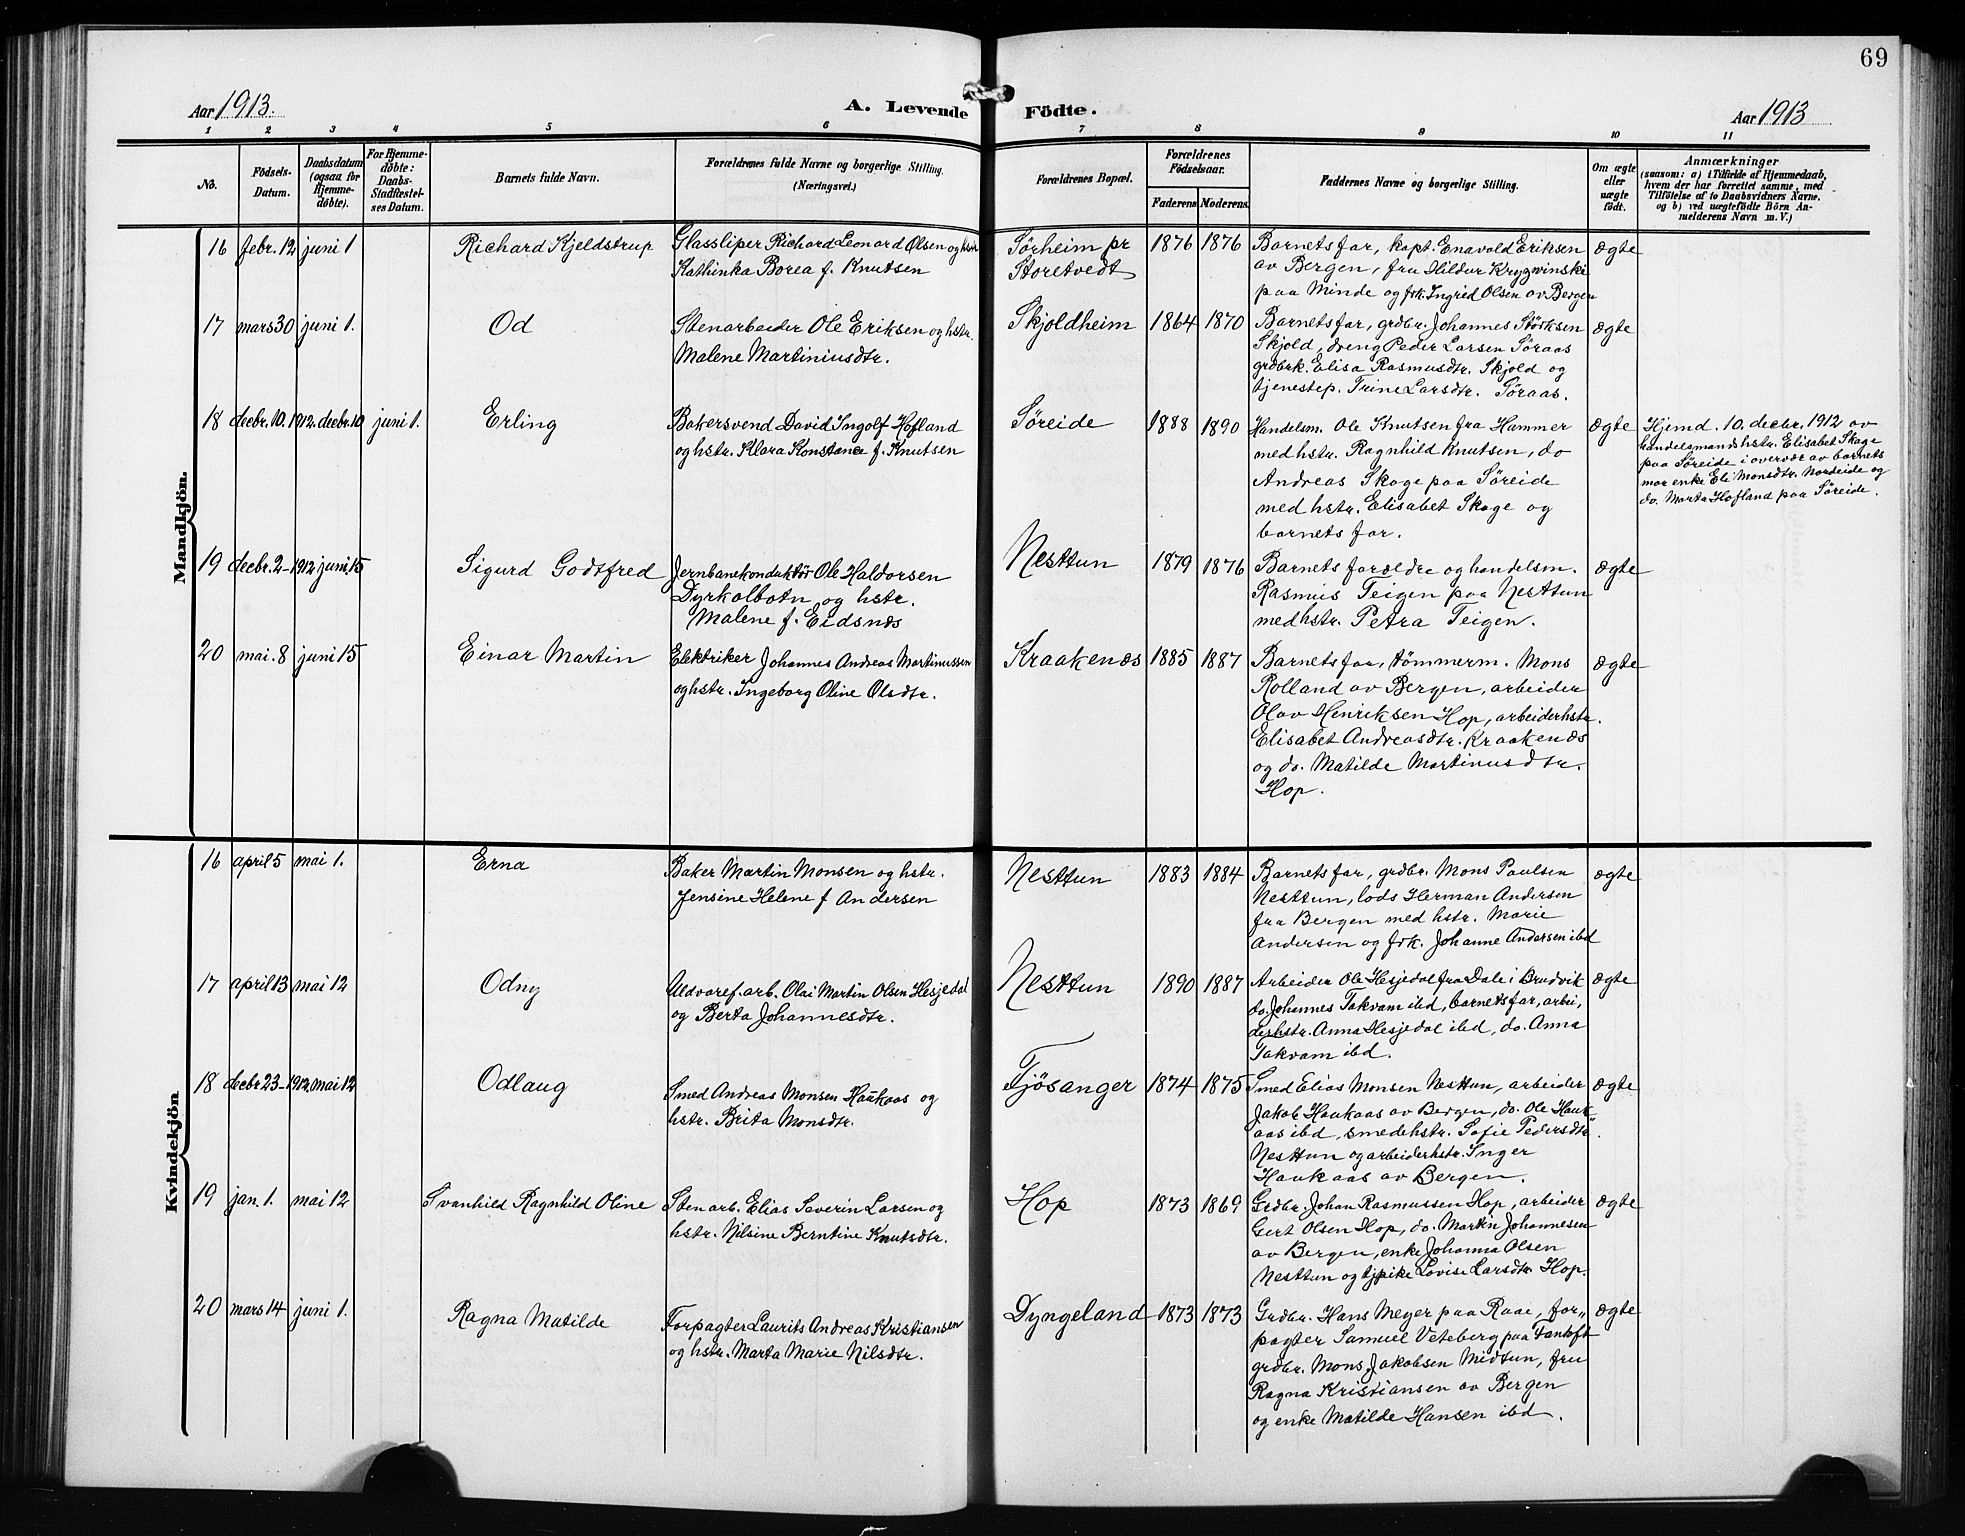 69
Aar 1913.
A. Levende
Födte.
Aar 1913
1 2 3 4 5 6 7 8 9 10 11
No.
Födsels-
Datum.
Daabsdatum
(ogsaa for
Hjemme-
döbte).
For Hjemme-
döbte:
Daabs-
Stadfæstel-
ses Datum.
Barnets fulde Navn.
Forældrenes fulde Navne og borgerlige Stilling.
(Næringsvei.)
Forældrenes Bopæl.
Forældrenes
Födselsaar.
Faderens
Moderens
Faddernes Navne og borgerlige Stilling.
Om ægte
eller
uægte
födt.
Anmærkninger
(saasom: a) i Tilfælde af Hjemmedaab,
hvem der har forrettet samme, med
Tilföielse af to Daabsvidners Navne.
og b) ved uægtefödte Börn An-
melderens Navn m. V.)
Mandkjön.
16 febr. 12 juni 1
Richard Kjeldstrup
Glassliper Richard Leonard Olsen og hstr
Kathinka Borea f. Knutsen
Sørheim pr
Storetvedt
1876 1876
Barnets far, kapt. Enavold Eriksen
av Bergen, fru Hildur Krygwinski
paa Minde og frk. Ingrid Olsen av Bergen
ægte
17 mars 30 juni 1.
Od
Stenarbeider Ole Eriksen og hstr.
Malene Martiniusdtr.
Skjoldheim
1864 1870
Barnets far, grdbr. Johannes Størksen
Skjold, dreng Peder Larsen Søraas
grdbrk. Elisa Rasmusdtr. Skjold og
tjenestep. Trine Larsdtr. Søraas.
ægte
18 decbr. 10. 1912. decbr. 10 juni 1.
Erling
Bakersvend David Ingolf Hofland
og hstr. Klara Konstance f. Knutsen
Søreide
1888 1890
Handelsm. Ole Knutsen fra Hammer
med hstr. Ragnhild Knutsen, do
Andreas Skage paa Søreide
med hstr. Elisabet Skage og
barnets far.
ægte
Hjemd. 10. decbr. 1912 av
handelsmands hstr. Elisabet Skage
paa Søreide i overvær av barnets
mor enke Eli Monsdtr. Nordeide og
do. Marta Hofland paa Søreide.
19 decbr. 2 - 1912 juni 15
Sigurd Godtfred
Jernbanekonduktör Ole Haldorsen
Dyrkolbotn og hstr.
Malene f. Eidsnæs
Nesttun
1879 1876
Barnets forældre og handelsm.
Rasmus Teigen paa Nesttun
med hstr. Petra Teigen.
ægte
20 mai. 8 juni 15
Einar Martin
Elektriker Johannes Andreas Martinussen
og hstr. Ingeborg Oline Olsdtr.
Kraakenæs
1885 1887
Barnets far, tømmerm. Mons
Rolland av Bergen, arbeider
Olav Henriksen Hop, arbeiderhstr.
Elisabet Andreasdtr. Kraakenæs
og do. Matilde Martinusdtr.
Hop.
ægte
Kvindekjön
16 april 5 mai 1.
Erna
Baker Martin Monsen og hstr.
Jensine Helene f Andersen
Nesttun
1883 1884
Barnets far, grdbr. Mons Paulsen
Nesttun, lods Herman Andersen
fra Bergen med hstr. Marie
Andersen og frk. Johanne Andersen ibd
ægte
17 april 13 mai 12
Odny
Uldvaref.arb. Olai Martin Olsen Hesjedal
og Berta Johannesdtr.
Nesttun
1890 1887
Arbeider Ole Hesjedal fra Dale i Bruvik
do. Johannes Takvam ibd, barnets far, arbei,
derhstr. Anna Hesjedal ibd, do. Anna
Takvam ibd.
ægte
18 decbr 23 - 1912. mai 12
Odlaug
Smed Andreas Monsen Haukaas og
hstr. Brita Monsdtr.
Fjösanger
1874 1875
Smed Elias Monsen Nesttun, arbeider
Jakob Haukaas av Bergen, do. Ole Hauk-
aas ibd, smedehstr. Sofie Pedersdtr.
Nesttun og arbeiderhstr. Inger
Haukaas av Bergen.
ægte
19 jan. 1. mai 12
Svanhild Ragnhild Oline
Stenarb. Elias Severin Larsen og
hstr. Nilsine Berntine Knutsdtr.
Hop
1873 1869
Grdbr. Johan Rasmussen Hop, arbeider
Gert Olsen Hop, do. Martin Johannesen
av Bergen, enke Johanna Olsen
Nesttun og tj.pike Lovise Larsdtr Hop.
ægte
20 mars 14 juni 1.
Ragna Matilde
Forpagter Laurits Andreas Kristiansen
og hstr. Marta Marie Nilsdtr.
Dyngeland
1873 1873
Grdbr. Hans Meyer paa Raae, for„
pagter Samuel Veteberg paa Fantoft
grdbr. Mons Jakobsen Midtun, fru
Ragna Kristiansen av Bergen
og enke Matilde Hansen ibd.
ægte